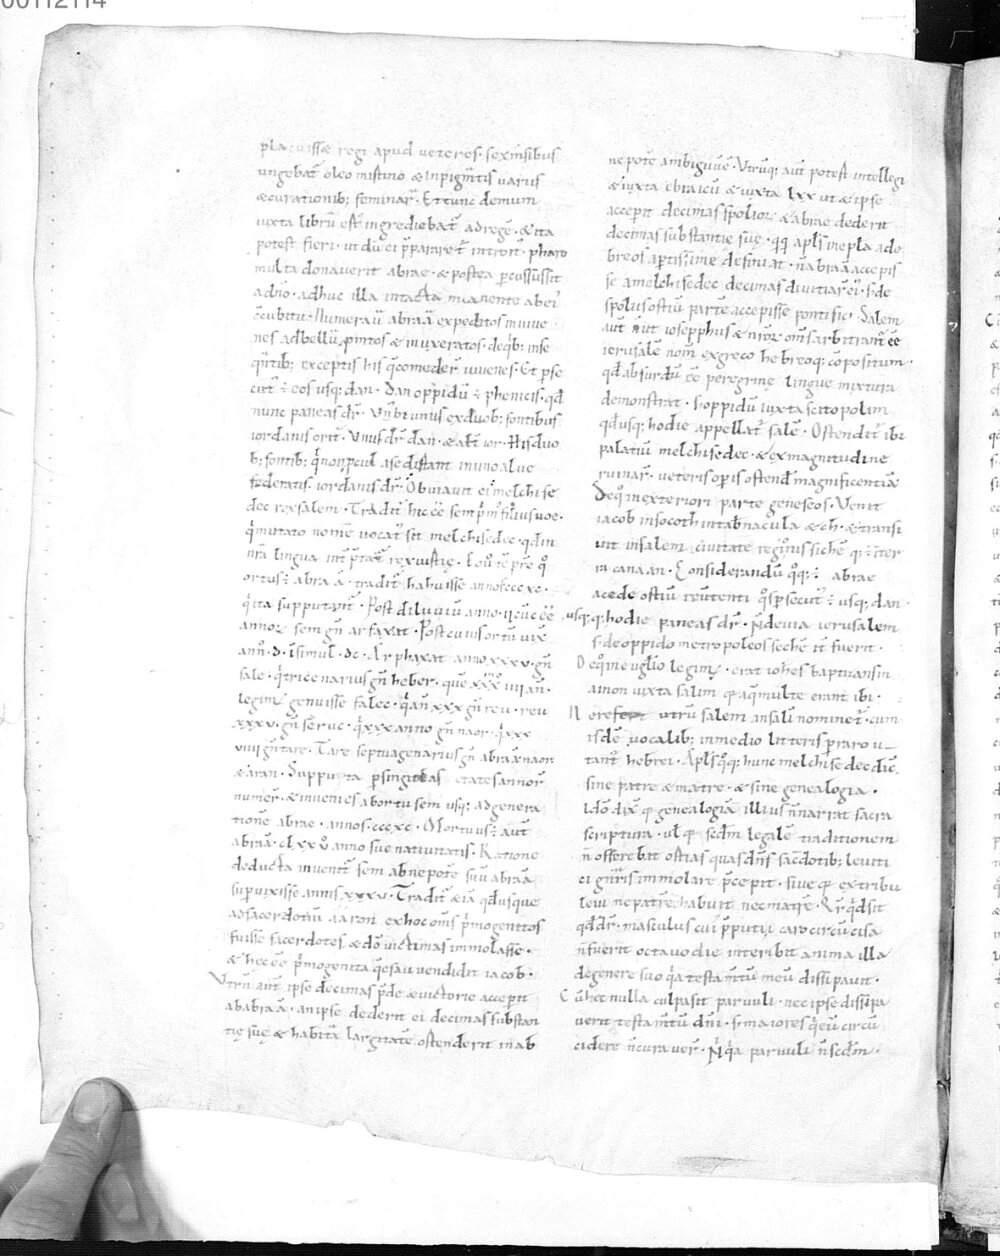 00112114
placuisse regi apud ueteres. sex m̅sibus
ungebat̅ oleo mistino & in pigm̅tis uariis
& curationib; feminar̅. Et tunc demum
iuxta libru̅ est̅ ingrediebat̅ ad rege̅. & ita
potest fieri. ut du̅ ei p̅parare t̅ introit̅. pharo
multa donauerit abrae. & postea percussus sit
a dn̅o. adhuc illa intacta manente ab ei
c̅cubitu. Numerau̅ abraa̅ expeditos iuuue
nes ad bellu̅
q̅ntib; exceptis his q̅ comeder̅ iuuenes. Et perse
cut̅ ÷ eos usq; dan. Dan oppidu̅ ÷ phenicis. qd̅
nunc paneas dr̅. Vn̅ & unus ex duob; fontibus
iordanis orit̅. Vnus dr̅ dan. & alt̅ ior. His duo
b; fontib; q̅ non p̅cul a se distant in uno alueo
federatis. iordanis dr̅. Obuiauit ei melchise
dec rex salem. Tradit̅ hic e̅e sem p̅m̅ filius noe.
q̅ mutato nom̅e uocat̅ sit melchisedec. qd̅ in
nr̅a lingua int̅p̅tat̅ rex iustie̅.
ortus ÷ abraa̅. tradit̅ habuisse annos cccxc.
q̅ ita supputant̅. Post diluuiu̅ anno. ii
annor̅ sem gn̅ arfaxat. Post cuius ortu̅ uix̅
ann̅. d. i̅ simul. dc. Arphaxat anno xxxv. gn̅
sale. q̅ tricenarius gn̅ heber. que̅ xxx iiii an̅.
legim̅ genuisse falec. q̅ an̅ xxx gn̅ reu. reu
xxxv. gn̅ seruc. q̅ xxx anno gn̅ naor. q̅ xxx
uiiii gn̅ tare. Tare septuagenarius gn̅ abraa̅ naor
& aran. Supputa p̅ singulas etates annor̅
numer̅. & inuenies ab ortu sem usq; ad genera
tione̅ abrae. annos. cccxc. Mortuus ÷ aut̅
abraa̅. clxxv anno sue natiuitatis. Ratione
deducta inuent̅ sem abnepote̅ suu̅ abraa̅
superuixisse annis xxxv. Tradit̅ & ia̅ qd̅ usque
ad sacerdotiu̅ aaron ex hoc om̅s p̅mogenitos
fuisse sacerdotes. & do̅ uictimas immolasse.
& hec e̅e p̅mogenita q̅ esau uendidit iacob.
Vtru̅ aut̅ ipse decimas p̅de & uictorie accepit
ab abraa̅. an ipse dederit ei decimas substan
tie̅ sue̅ & habita̅ largitate̅ ostenderit in ab
nepote ambiguu̅ e̅. Vtru̅q; aut̅ potest intellegi
& iuxta ebraicu̅ & iuxta lxx ut & ipse
accepit decimas spolior̅ & abrae dederit
decimas substantie̅ sue̅. qq̅ apl̅s in epl̅a ad e
breos aptissime definiat. n̅ abraa̅ accepis
se a melchisedec decimas diuitiar̅ ei̅. s; de
spoliis ostiu̅ parte̅ accepisse pontifice̅. Salem
aut̅ n̅ ut iosepphus & nr̅or̅ om̅s arbitrant̅ e̅e
ierusale̅ nom̅ ex greco hebreoq; co̅positum.
qd̅ absurdu̅ e̅e peregrine̅ lingue̅ mixtura
demonstrat. s; oppidu̅ iuxta scitopolim.
qd̅ usq; hodie appellat̅ sale̅. Ostendit̅ ibi
palatiu̅ melchisedec. & ex magnitudine
ruinar̅. ueteris op̅is ostend̅ magnificentia̅
De q̅ in exteriori parte geneseos. Venit
iacob in socoth in tab̅nacula & c̅h. & transi
uit in salem ciuitate̅ regionis siche̅ q; ÷ i̅ ter
ra canaan. Considerandu̅ q̅q; ÷ abrae
a cede ostiu̅ reu̅tenti q̅s p̅secut̅ ÷ usq; dan.
q; hodie paneas dr̅. N̅ deuia ierusalem
s; de oppido metropoleos seche̅ it̅ fuerit.
De q̅ in euglio legim̅. erat iohes baptizans in
ainon iuxta salim q aq̅ multe̅ erant ibi.
Ne refert utru̅ salem an sali̅ nominet̅. cum
isde̅ uocalib; in medio litteris p̅raro u
tant̅ hebrei. Apl̅s q̅q; hunc melchisedec dic̅.
sine patre & matre. & sine genealogia.
Ido̅ dix̅ q genealogia̅ illius n̅ narrat sacra
scriptura. ul̅ q scd̅m legale̅ traditionem
n̅ offerebat ostias quas dn̅s sac̅dotib; leuiti
ci gn̅ris immolare p̅cepit. siue q ex tribu
leui ne patre̅ habuit nec matre̅.
qd̅ dr̅. masculus cui̅ p̅putii caro circu̅cisa
n̅ fuerit octauo die interibit anima illa
de genere suo q̅a testam̅tu̅ meu̅ dissipauit.
Cu̅ hec nulla culpa sit paruuli. nec ipse dissipa
uerit testam̅tu̅ dn̅i. s; maiores q̅ eu̅ circu̅
cidere n̅ curauer̅. N̅ q̅a paruuli n̅ scd̅m.